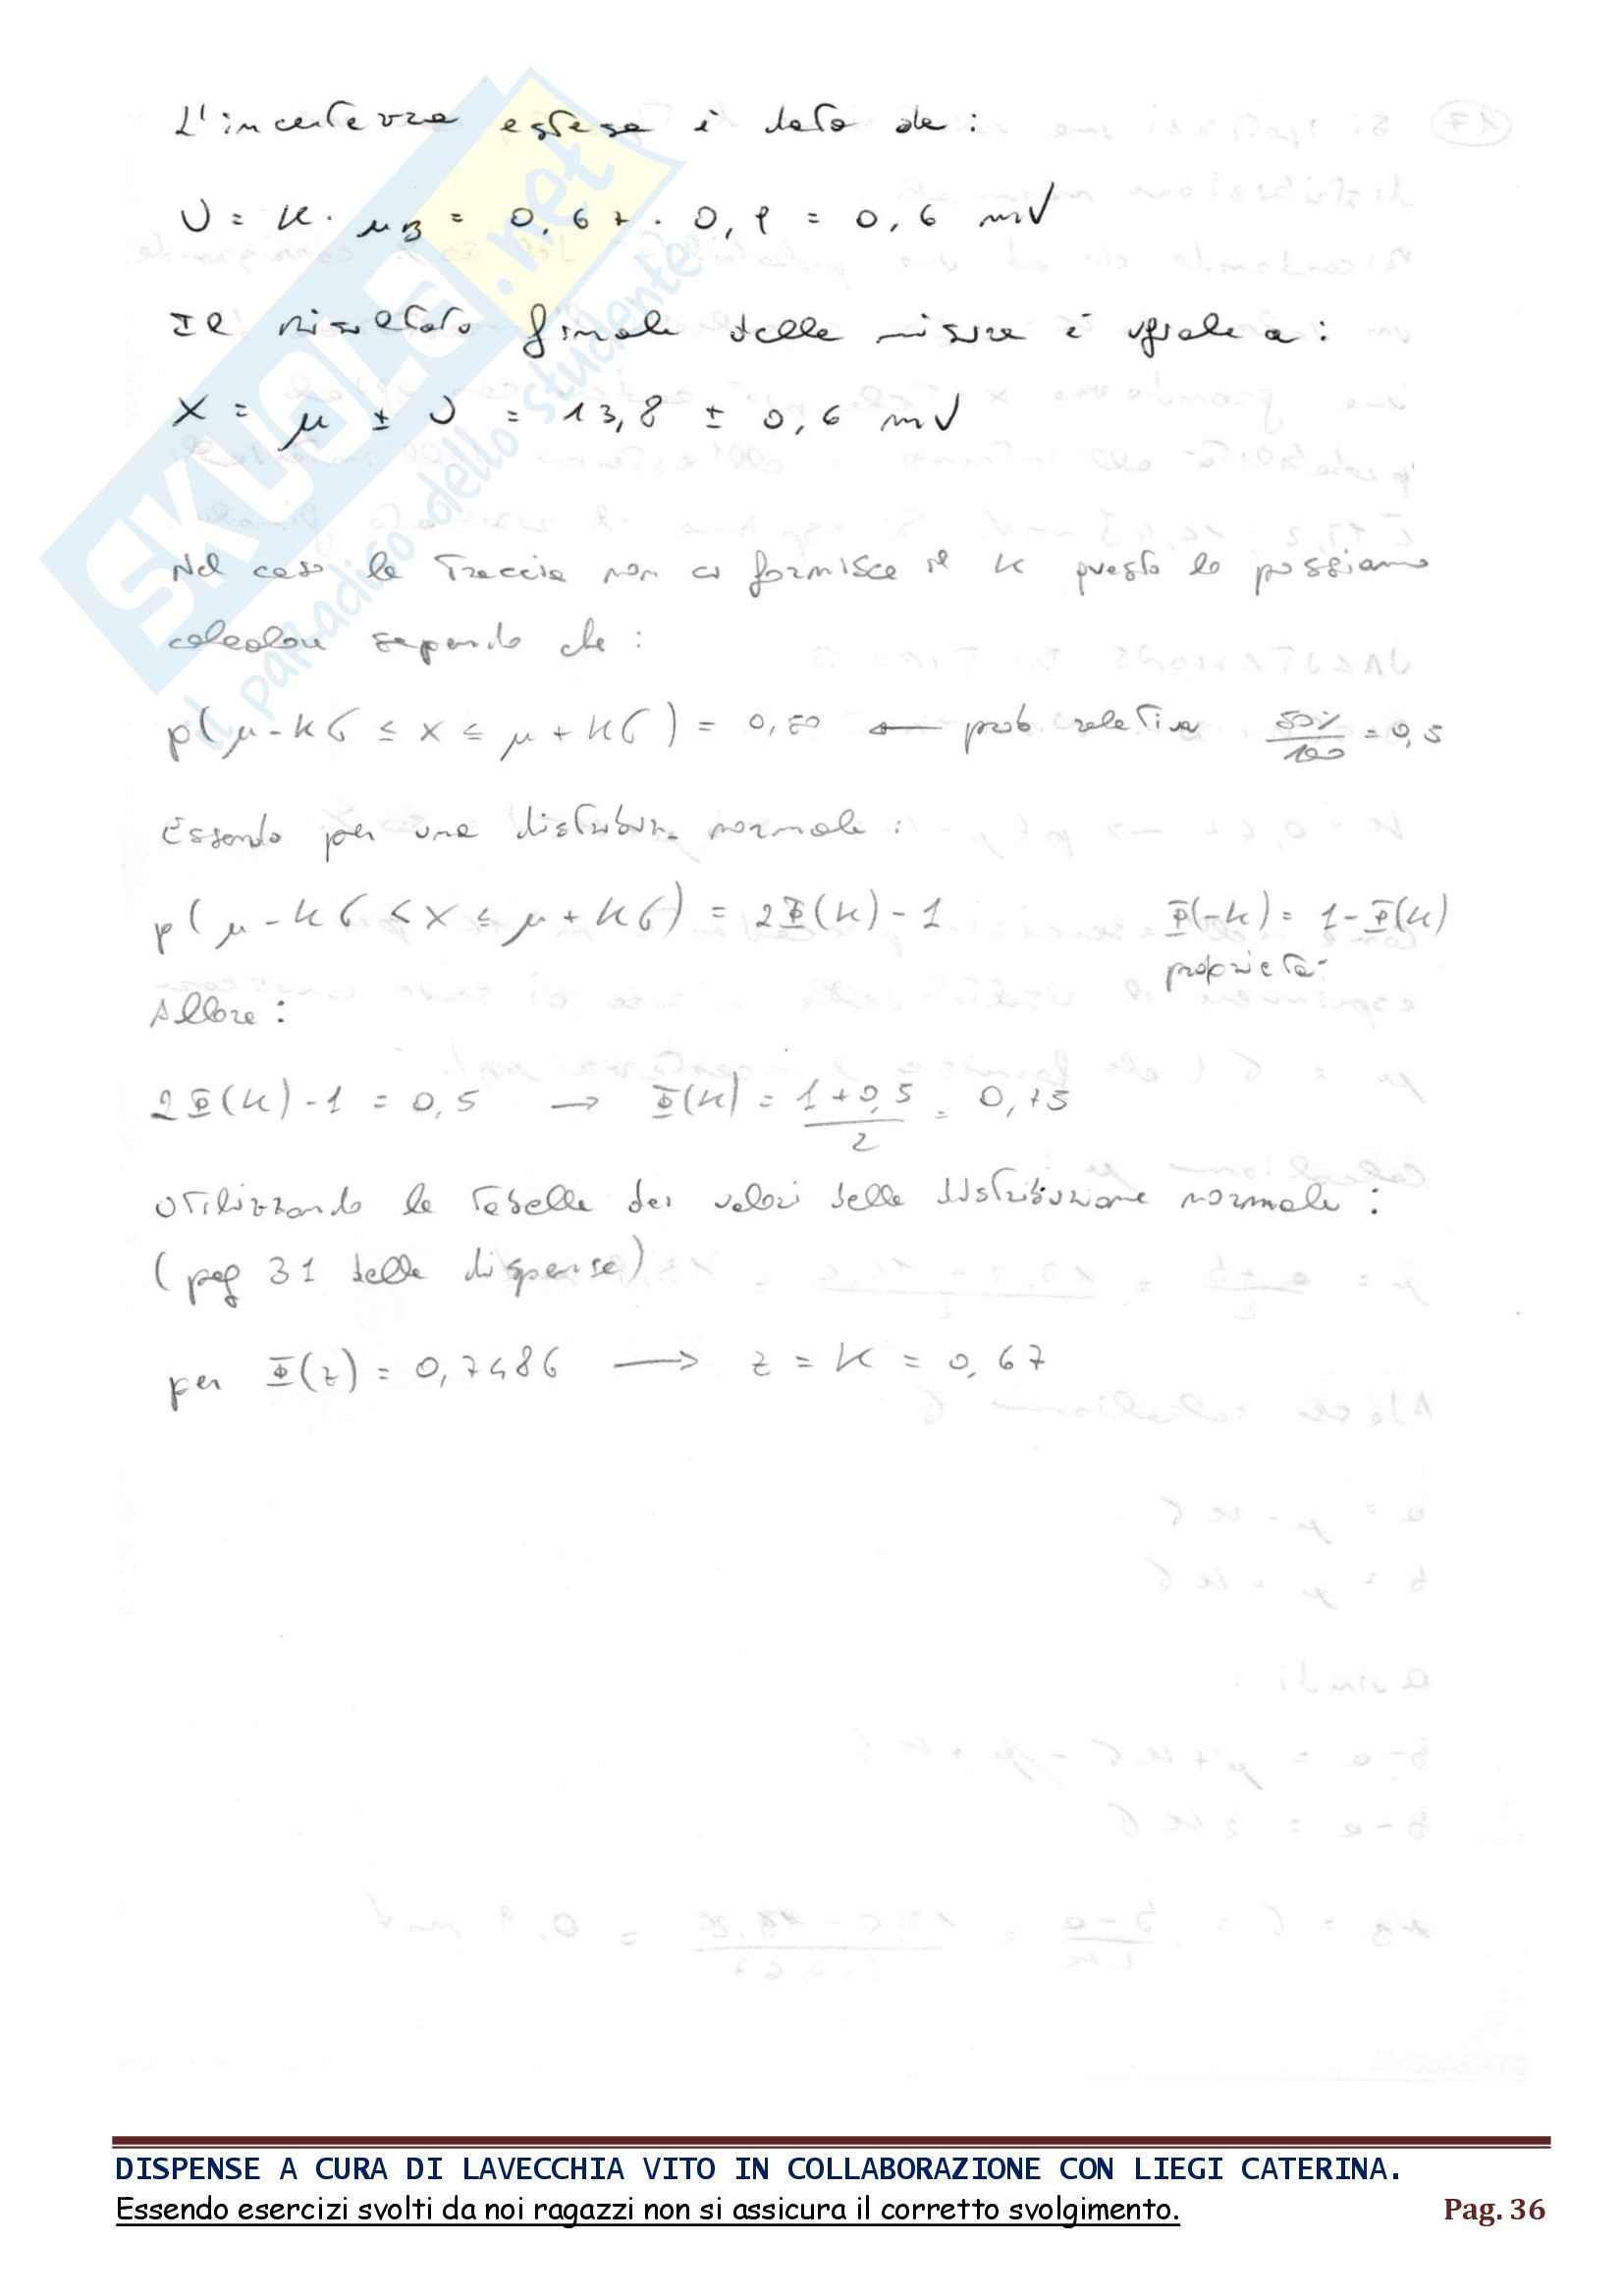 L'incertezza estesa è data da:
U = K · μB = 0,67 · 0,9 = 0,6 mV
Il risultato finale della misura è uguale a:
X = μ ± U = 13,8 ± 0,6 mV
SKUOLA.net
il paradiso dello studente
Nel caso la traccia non ci fornisce il K questo lo possiamo
calcolare sapendo che:
p(μ-Kσ ≤ x ≤ μ+Kσ) = 0,50 ← prob. relativa 50%/100 = 0,5
Essendo per una distribuz. normale:
p(μ-Kσ < x ≤ μ+Kσ) = 2Φ(K) - 1 Φ(-K) = 1-Φ(K)
proprietà
Allora:
2Φ(K) - 1 = 0,5 → Φ(K) = (1+0,5)/2 = 0,75
Utilizzando la tabella dei valori della distribuzione normale:
(pag 31 delle dispense)
per Φ(z) = 0,7486 → z = K = 0,67
DISPENSE A CURA DI LAVECCHIA VITO IN COLLABORAZIONE CON LIEGI CATERINA.
Essendo esercizi svolti da noi ragazzi non si assicura il corretto svolgimento. Pag. 36